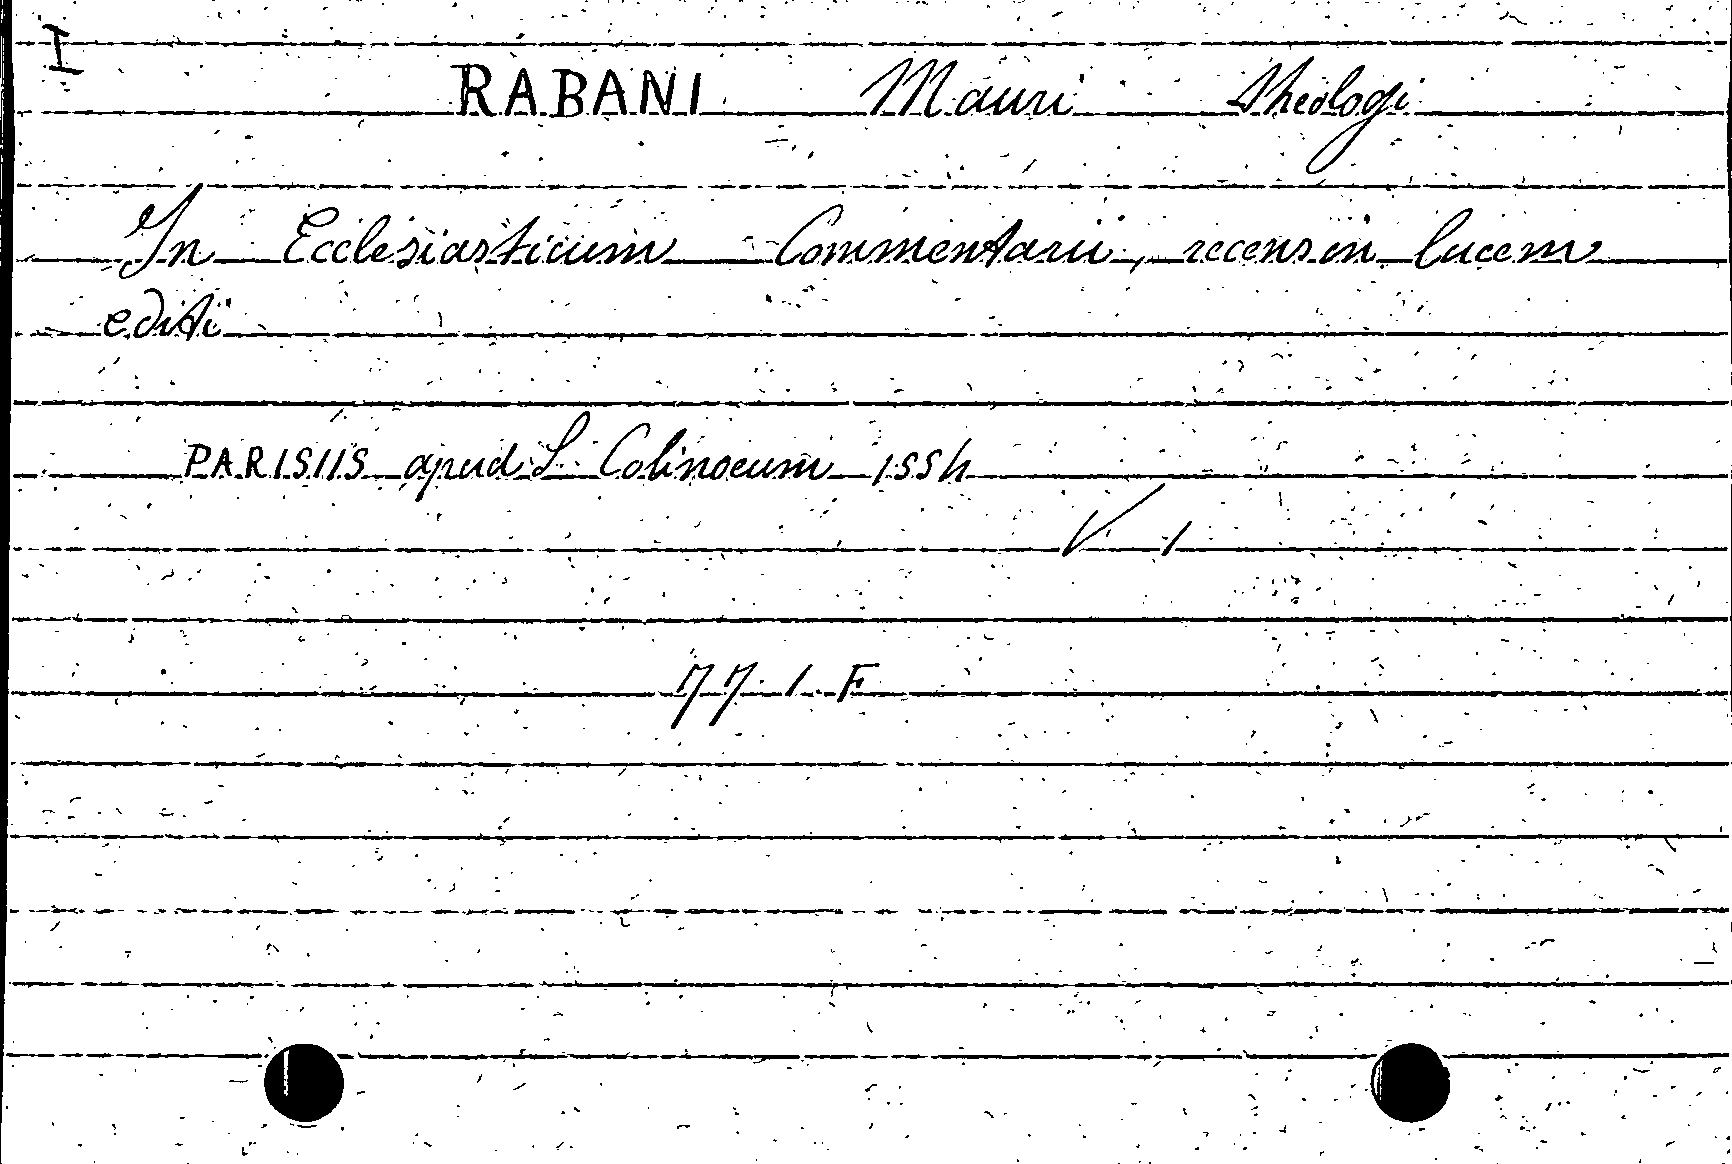 I
RABANI Mauri Theologi
In Ecclesiasticum Commentarii, recens in lucem
editi
PARISIIS apud S. Colinoeum 1554
V 1
77.1.F